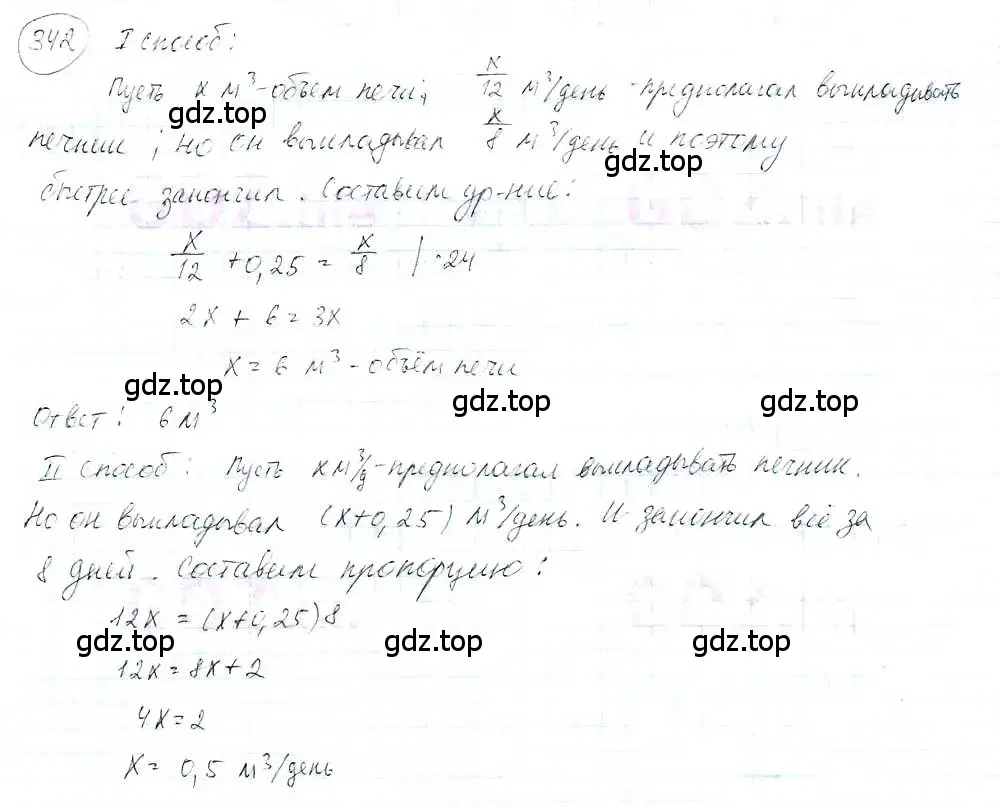 342 I способ:
Пусть x м³-объем печи, x/12 м³/день -предполагал выкладывать
печник, но он выкладывал x/8 м³/день и поэтому
быстрее закончил. Составим ур-ние:
x/12 + 0,25 = x/8 | · 24
2x + 6 = 3x
x = 6 м³ - объём печи
Ответ: 6 м³
II способ: Пусть x м³/д -предполагал выкладывать печник.
Но он выкладывал (x+0,25) м³/день. И закончил всё за
8 дней. Составим пропорцию:
12x = (x+0,25)8
12x = 8x + 2
4x = 2
x = 0,5 м³/день
gdz.top
gdz.top
gdz.top
gdz.top
gdz.top
gdz.top
gdz.top
gdz.top
gdz.top